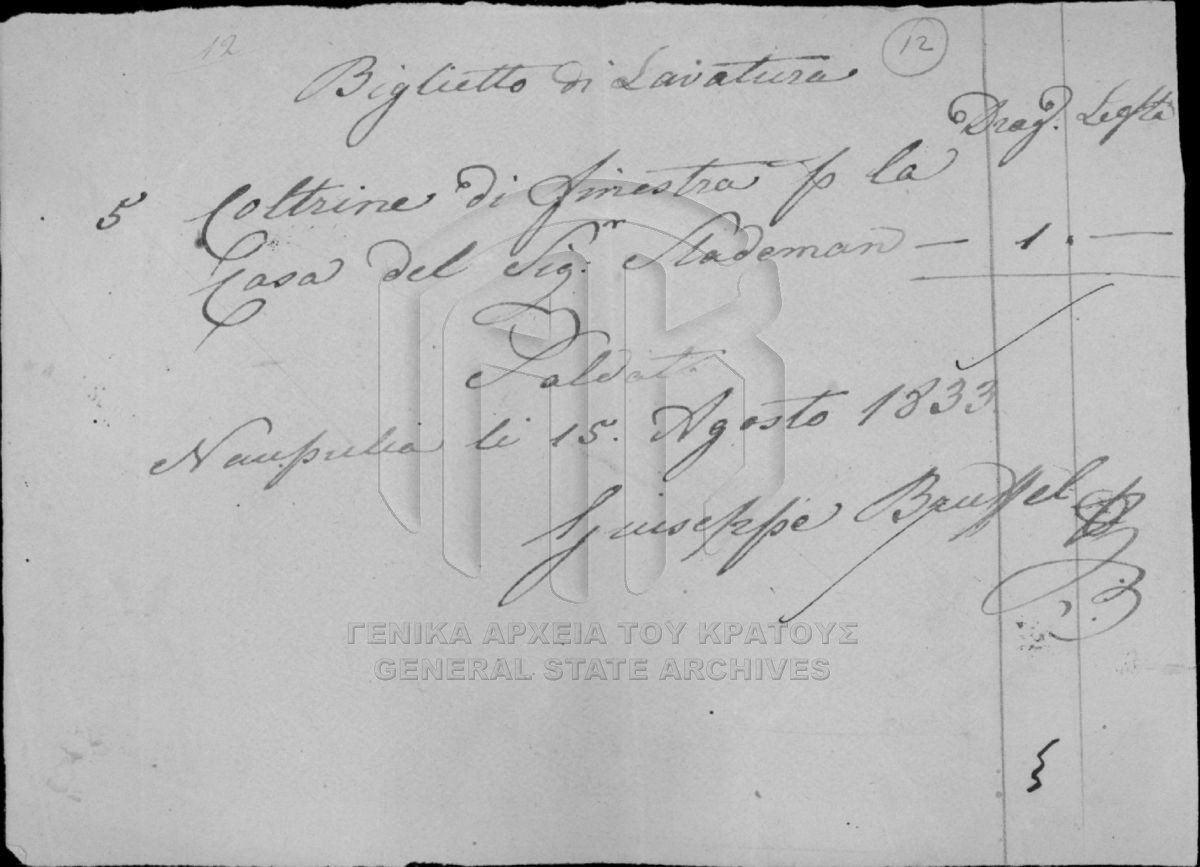 12
12
Biglietto di Lavatura
Drag. Lepta
5 Coltrine di finestra p la
Casa del Sig.r Stademan — 1. —
Saldato
Nauplia li 15. Agosto 1833
Giuseppe
ΓΕΝΙΚΑ ΑΡΧΕΙΑ ΤΟΥ ΚΡΑΤΟΥΣ
GENERAL STATE ARCHIVES